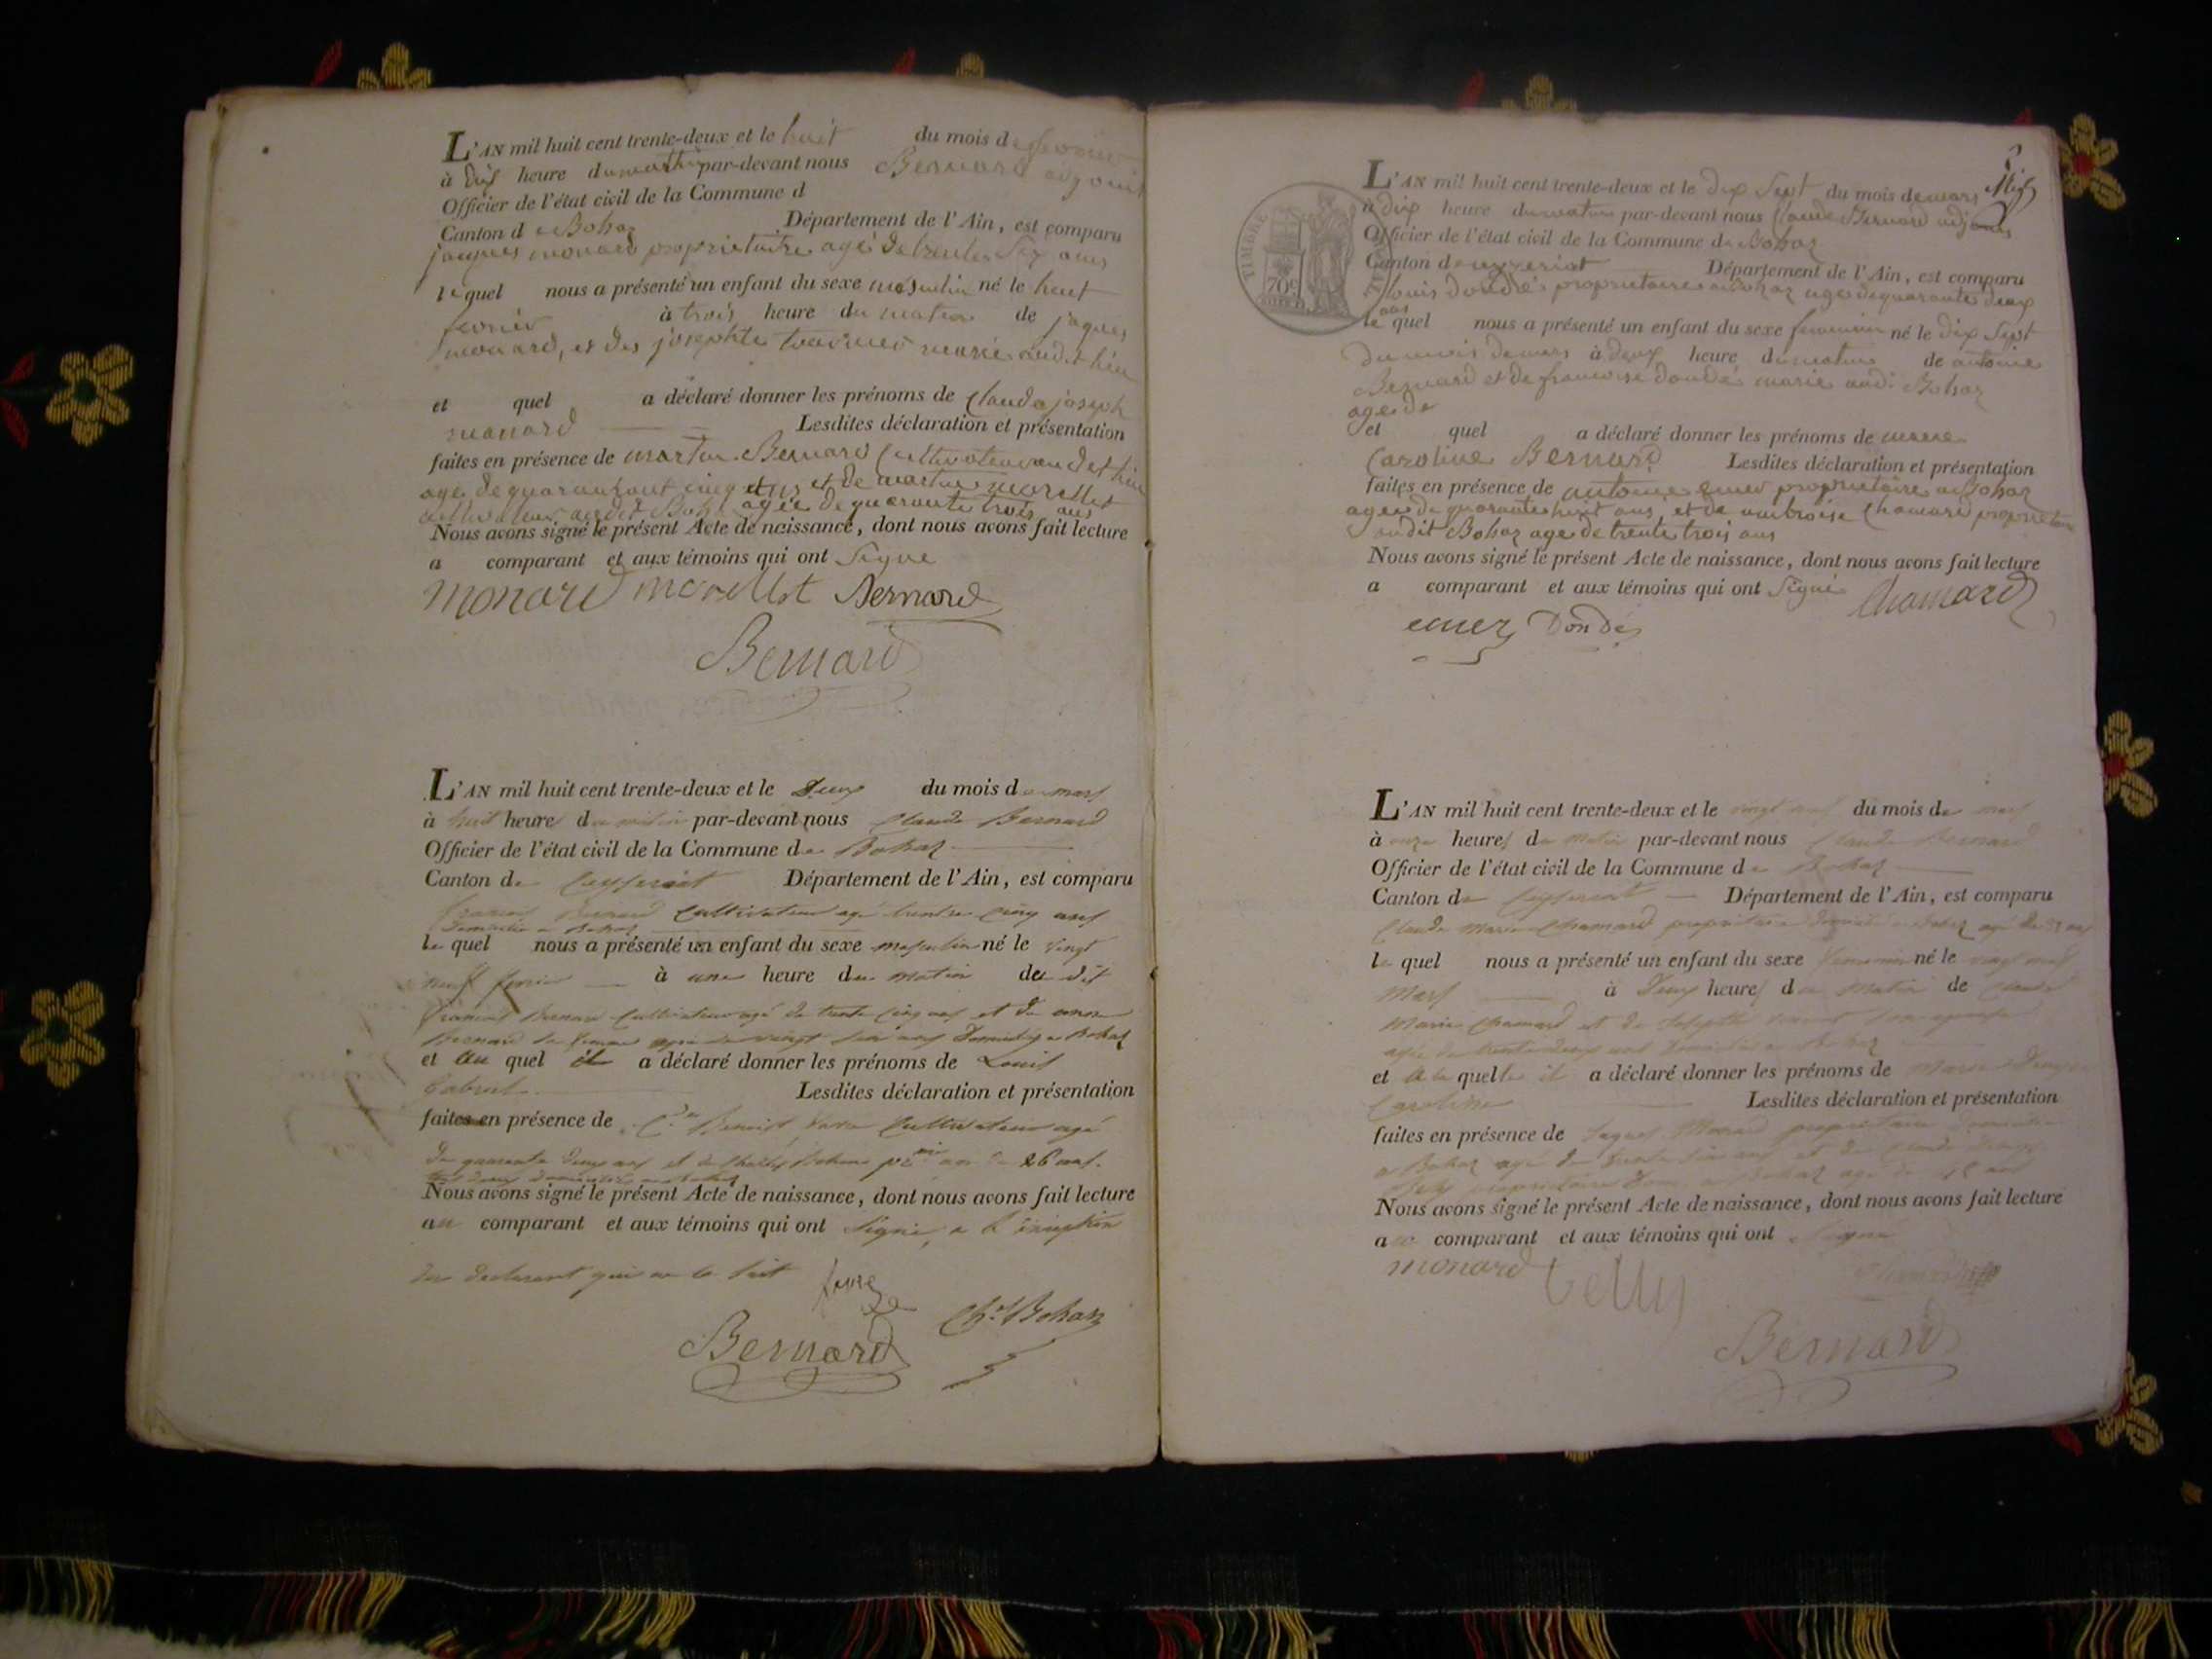 L'AN mil huit cent trente-deux et le huit du mois de fevrier
à dix heure du matin par-devant nous Bernard adjoint
Officier de l'état civil de la Commune d
Canton de Bohaz Département de l'Ain, est comparu
jacques monard propriétaire agé de trente Six ans
lequel nous a présenté un enfant du sexe masculin né le huit
fevrier à trois heure du matin de jaques
monard, et des josephte tournier marié audit lieu
et quel a déclaré donner les prénoms de Claude joseph
monard Lesdites déclaration et présentation
faites en présence de martin Bernard Cultivateur audit lieu
age de quarante cinq ans et de martin morellet
cultivateur audit Bohz agée de quarante trois ans
Nous avons signé le présent Acte de naissance, dont nous avons fait lecture
a comparant et aux témoins qui ont Signe
monard morellet Bernard
Bernard
L'AN mil huit cent trente-deux et le Deux du mois de mars
à huit heure du matin par-devant nous Claude Bernard
Officier de l'état civil de la Commune de Bohaz
Canton de Ceyseriat Département de l'Ain, est comparu
françois Bernard Cultivateur agé trente cinq ans
Domicilié a Bohaz
le quel nous a présenté un enfant du sexe masculin né le vingt
neuf fevrier à une heure du matin du dit
françois Bernard Cultivateur agé de trente cinq ans et de
Bernard sa femme agée de vingt ans Domiciliés a Bohaz
et au quel il a déclaré donner les prénoms de Louis
Gabriel Lesdites déclaration et présentation
faites en présence de Benoit Cultivateur agé
de quarante deux ans et de Charles Bohan 26 ans.
tous deux domiciliés a Bohaz
Nous avons signé le présent Acte de naissance, dont nous avons fait lecture
au comparant et aux témoins qui ont Signé, a l'exception
du declarant qui ne le sait
Bernard Ch. Bohan
TIMBRE
70c
L'AN mil huit cent trente-deux et le dix Sept du mois de mars
a dix heure du matin par-devant nous Claude Bernard adjoint
Officier de l'état civil de la Commune de Bohaz
Canton de ceyzeriat Département de l'Ain, est comparu
louis dondé propriétaire a Bohaz age de quarante deux
ans
le quel nous a présenté un enfant du sexe feminin né le dix Sept
du mois de mars à deux heure du matin de antoine
Bernard et de francoise dondé marié audi Bohaz
age de
et quel a déclaré donner les prénoms de marie
Caroline Bernard Lesdites déclaration et présentation
faites en présence de antoine propriétaire a Bohaz
agée de quarante huit ans, et de ambroise Chamard propriétaire
audit Bohaz age de trente trois ans
Nous avons signé le présent Acte de naissance, dont nous avons fait lecture
a comparant et aux témoins qui ont Signé Chamard
Dondé
L'AN mil huit cent trente-deux et le vingt neuf du mois de mars
à onze heures du matin par-devant nous Claude Bernard
Officier de l'état civil de la Commune de Bohaz
Canton de Ceyseriat Département de l'Ain, est comparu
Claude Marie Chamard propriétaire domicilié a Bohaz agé de 32 ans
le quel nous a présenté un enfant du sexe feminin né le vingt neuf
Mars à Deux heures du Matin de Claude
Marie Chamard et de Josephte son épouse
agée de trente deux ans Domiciliés a Bohaz
et a la quelle il a déclaré donner les prénoms de Marie
Caroline Lesdites déclaration et présentation
faites en présence de Jaques Monard propriétaire Domicilié
a Bohaz agé de trente six ans et de Claude
propriétaire Dom a Bohaz agé de ans
Nous avons signé le présent Acte de naissance, dont nous avons fait lecture
au comparant et aux témoins qui ont Signé
monard
Bernard